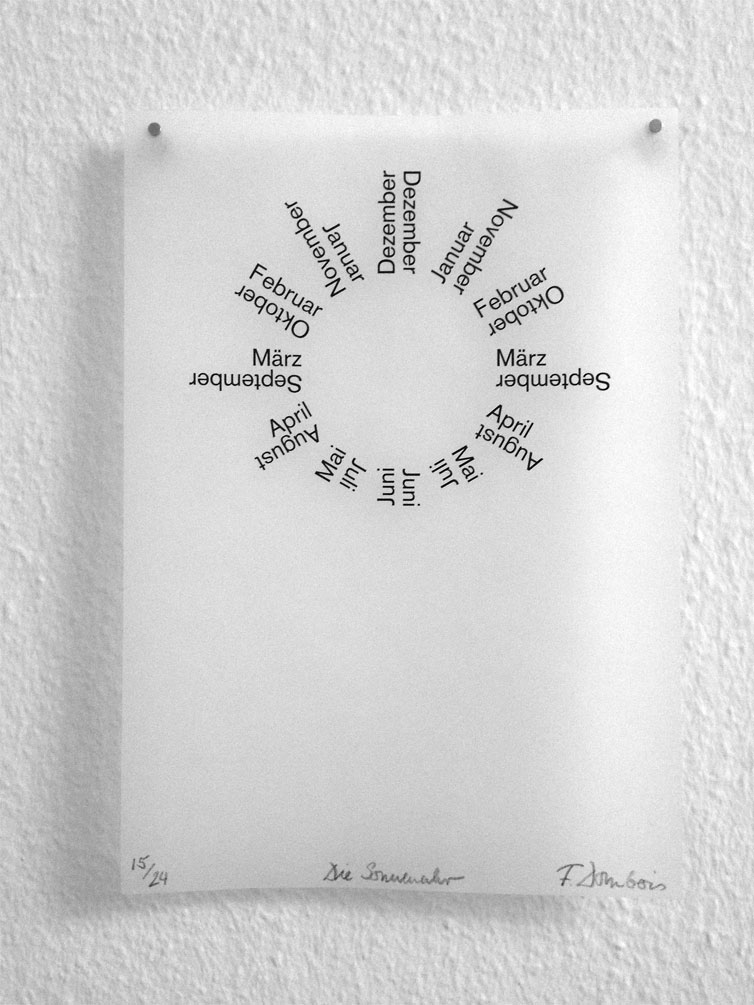 Dezember
Dezember
Januar
November
Februar
Oktober
März
September
April
August
Mai
Juli
Juni
Juni
Mai
Juli
April
August
März
September
Februar
Oktober
Januar
November
15/24
Die Sonnenuhr
F. Dombois